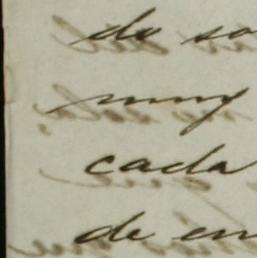 de so
muy
cada
de en